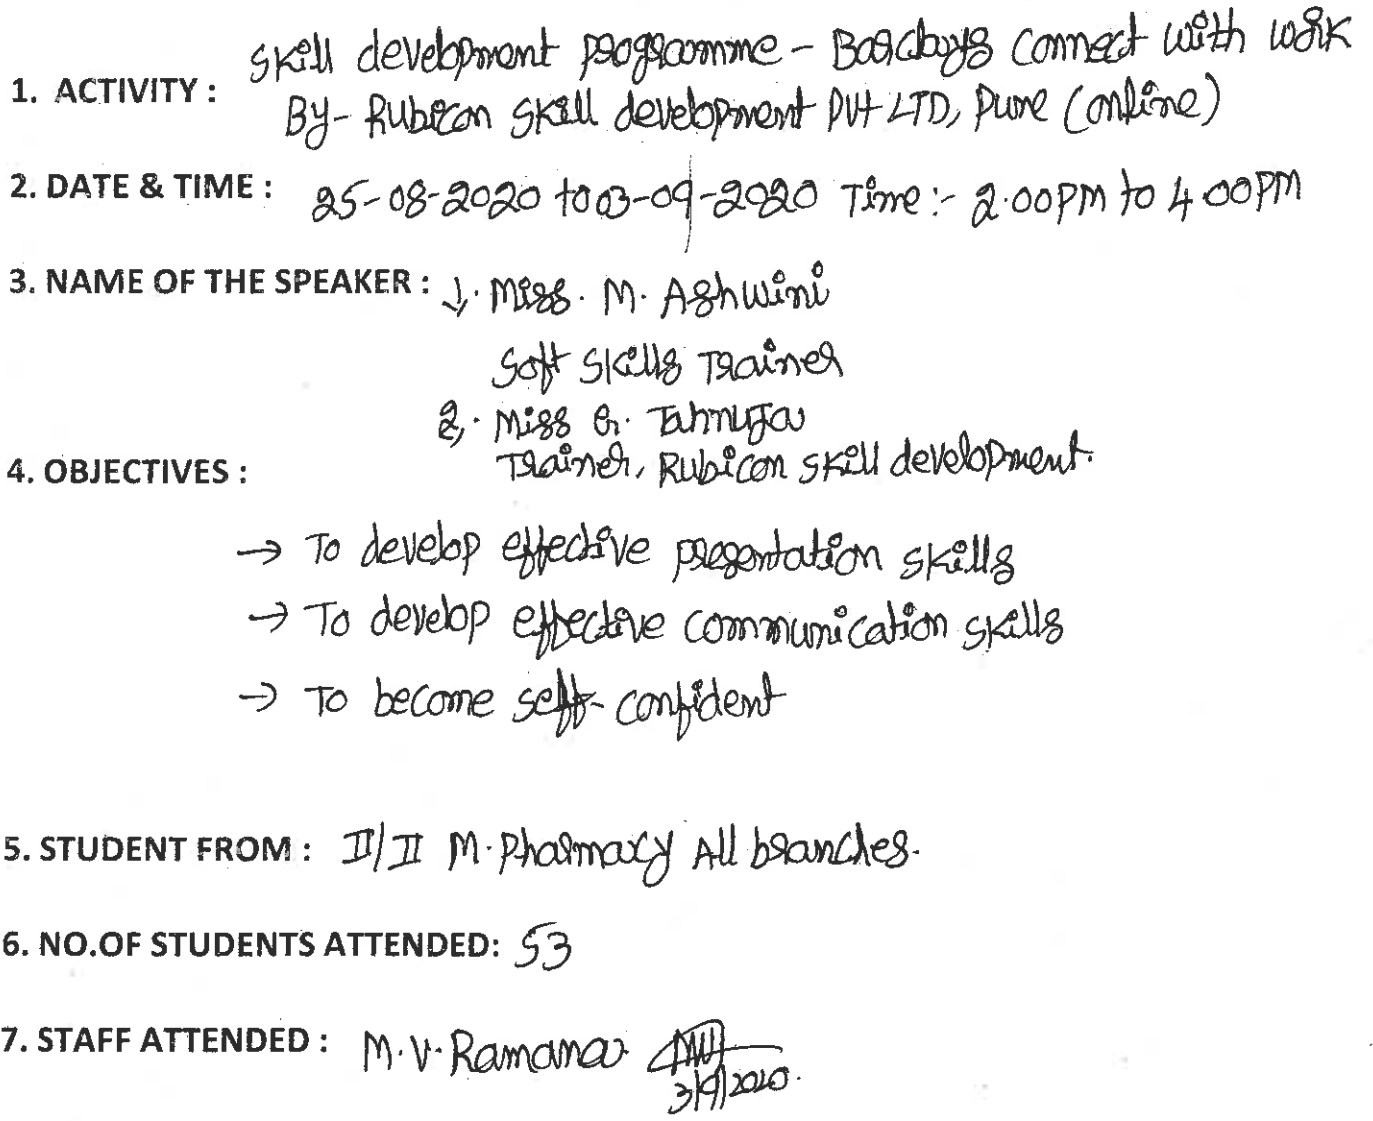 Skill development programme - Barclays Connect with work
1. ACTIVITY :
By - Rubicon Skill development Pvt LTD, Pune (online)
2. DATE & TIME : 25-08-2020 to 03-09-2020 Time :- 2.00PM to 4.00PM
3. NAME OF THE SPEAKER : 1. Miss. M. Ashwini
Soft Skills Trainer
2. Miss G. Tahnuja
Trainer, Rubicon skill development.
4. OBJECTIVES :
→ To develop effective presentation skills
→ To develop effective communication skills
→ To become self-confident
5. STUDENT FROM : II/II M.Pharmacy All branches.
6. NO.OF STUDENTS ATTENDED: 53
7. STAFF ATTENDED : M.V.Ramana
3/9/2020.